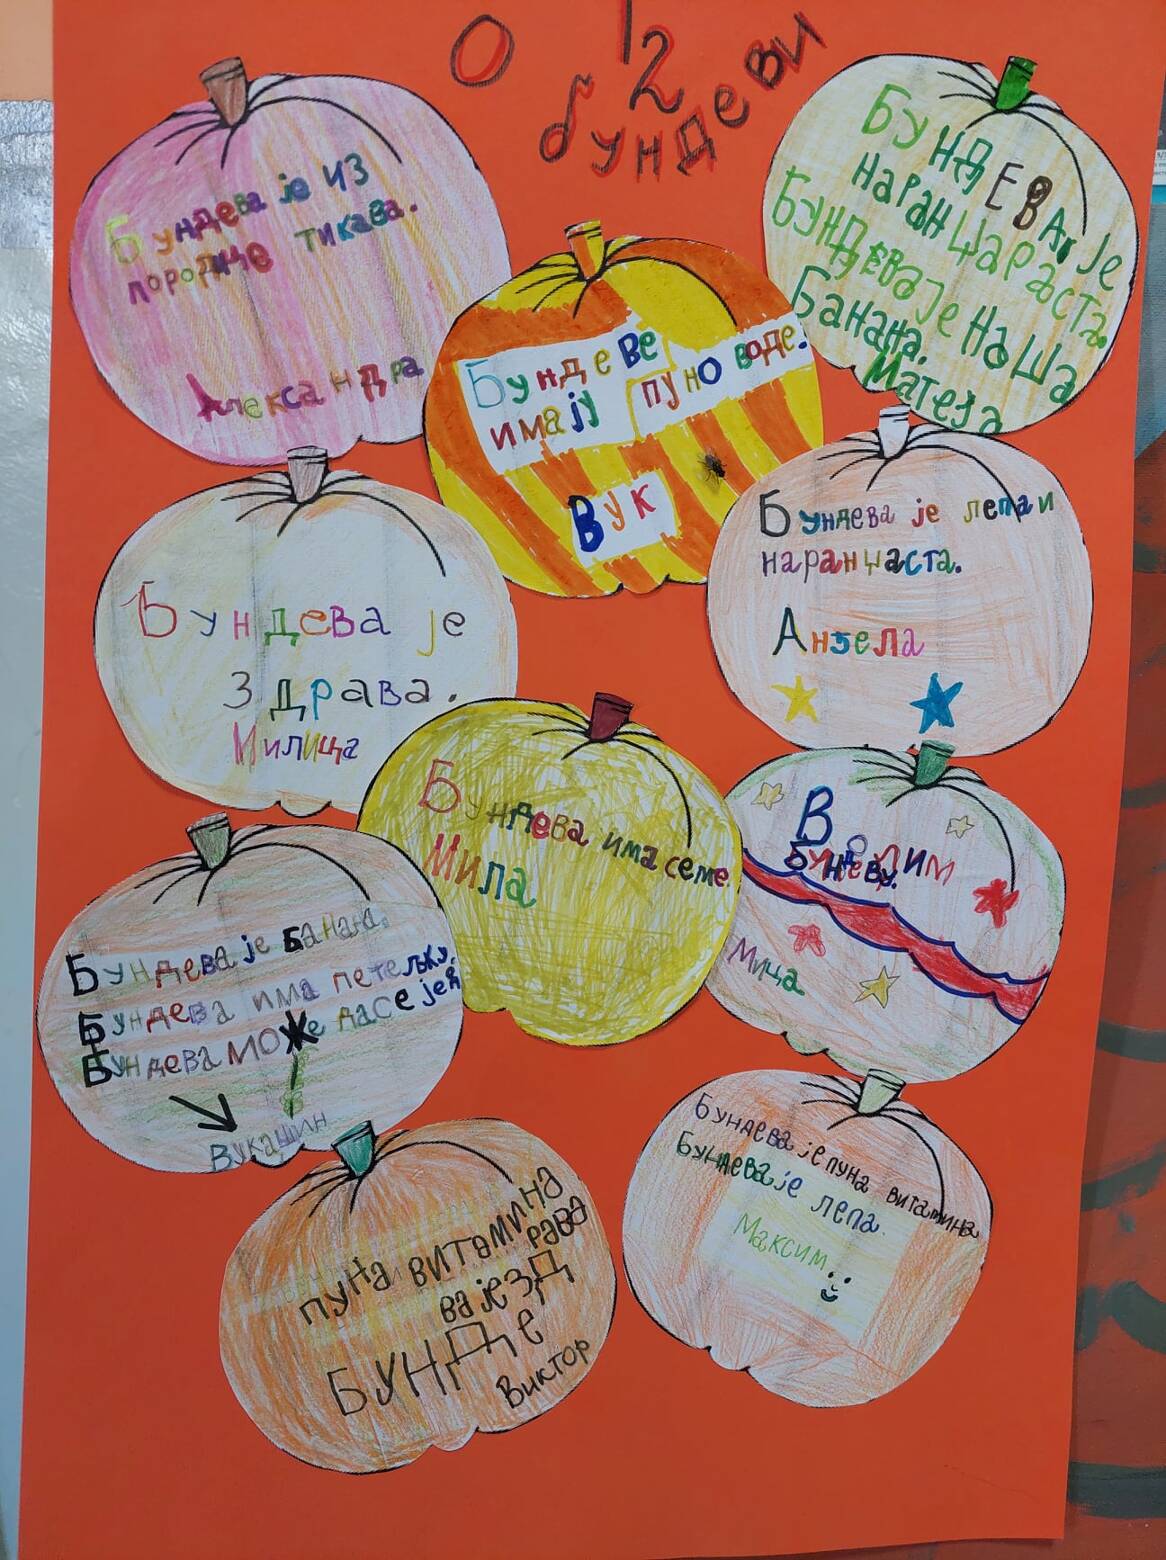 О 12
бундеви
Бундева је из
породице тикава.
Александра
Бундеве
имају
пуно воде.
Вук
БУНДЕВА је
наранџараста.
Бундеваје наша
Банана.
Матеја
Бундева је
здрава.
Милица
Бундева је лепа и
наранџаста.
Анђела
Бундева има семе.
Мила
Волим
Бундеву.
Мица
Бундева је банана.
Бундева има петељку.
Бундева може да се једе
Вукашин
пуна витамина
рава
ва је зд
БУНДе
Виктор
Бундева је пуна витамина
Бундева је лепа.
Максим